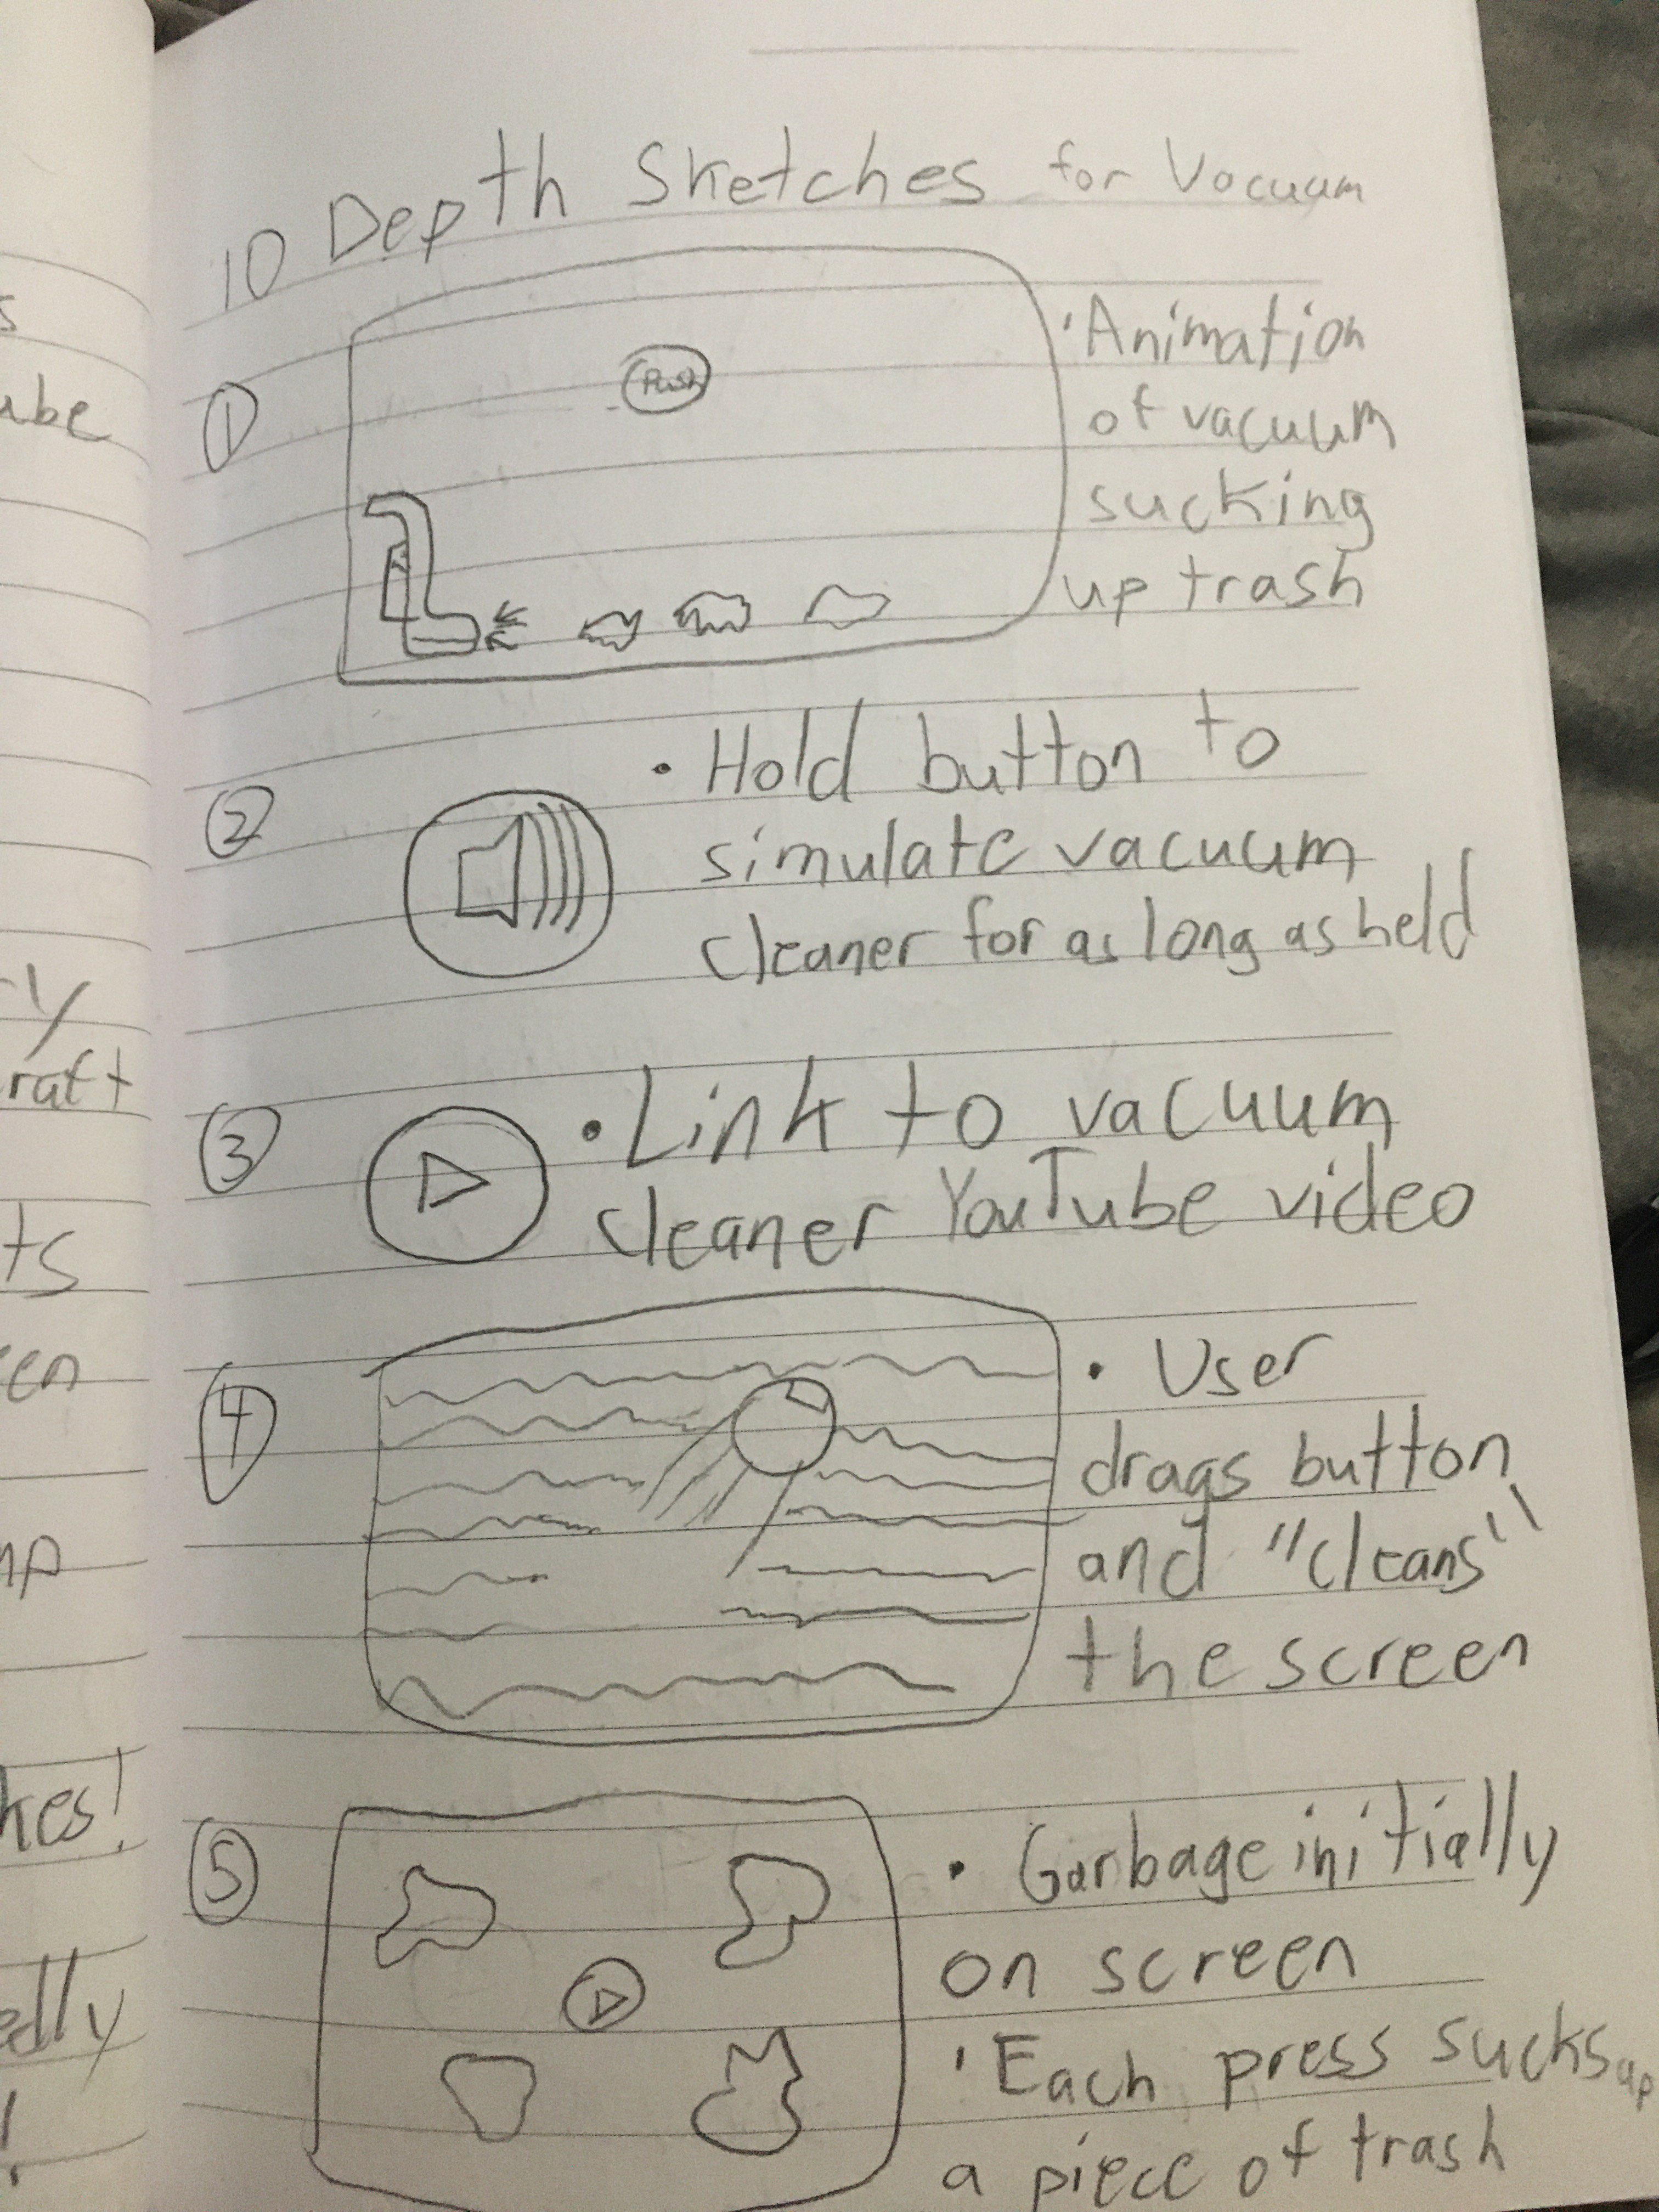 10 Depth Sketches for Vacuum
①
Push
• Animation
of vacuum
sucking
up trash
②
• Hold button to
simulate vacuum
cleaner for as long as held
③
• Link to vacuum
cleaner YouTube video
④
• User
drags button
and "cleans"
the screen
⑤
• Garbage initially
on screen
• Each press sucks up
a piece of trash